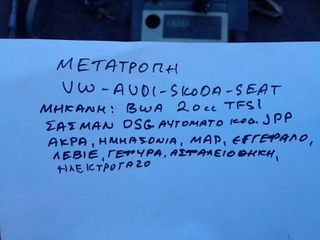 ΜΕΤΑΤΡΟΠΗ
VW-AUDI-SKODA-SEAT
ΜΗΚΑΝΗ: BWA 2.0cc TFSI
ΣΑΣΜΑΝ DSG ΑΥΤΟΜΑΤΟ ΚΟΔ. JPP
ΑΚΡΑ, ΗΜΗΑΞΟΝΙΑ, MAP, ΕΓΓΕΦΑΛΟ,
ΛΕΒΙΕ, ΓΕΦΥΡΑ, ΑΣΦΑΛΕΙΟΘΗΚΗ,
ΗΛΕΚΤΡΟΓΑΖΟ